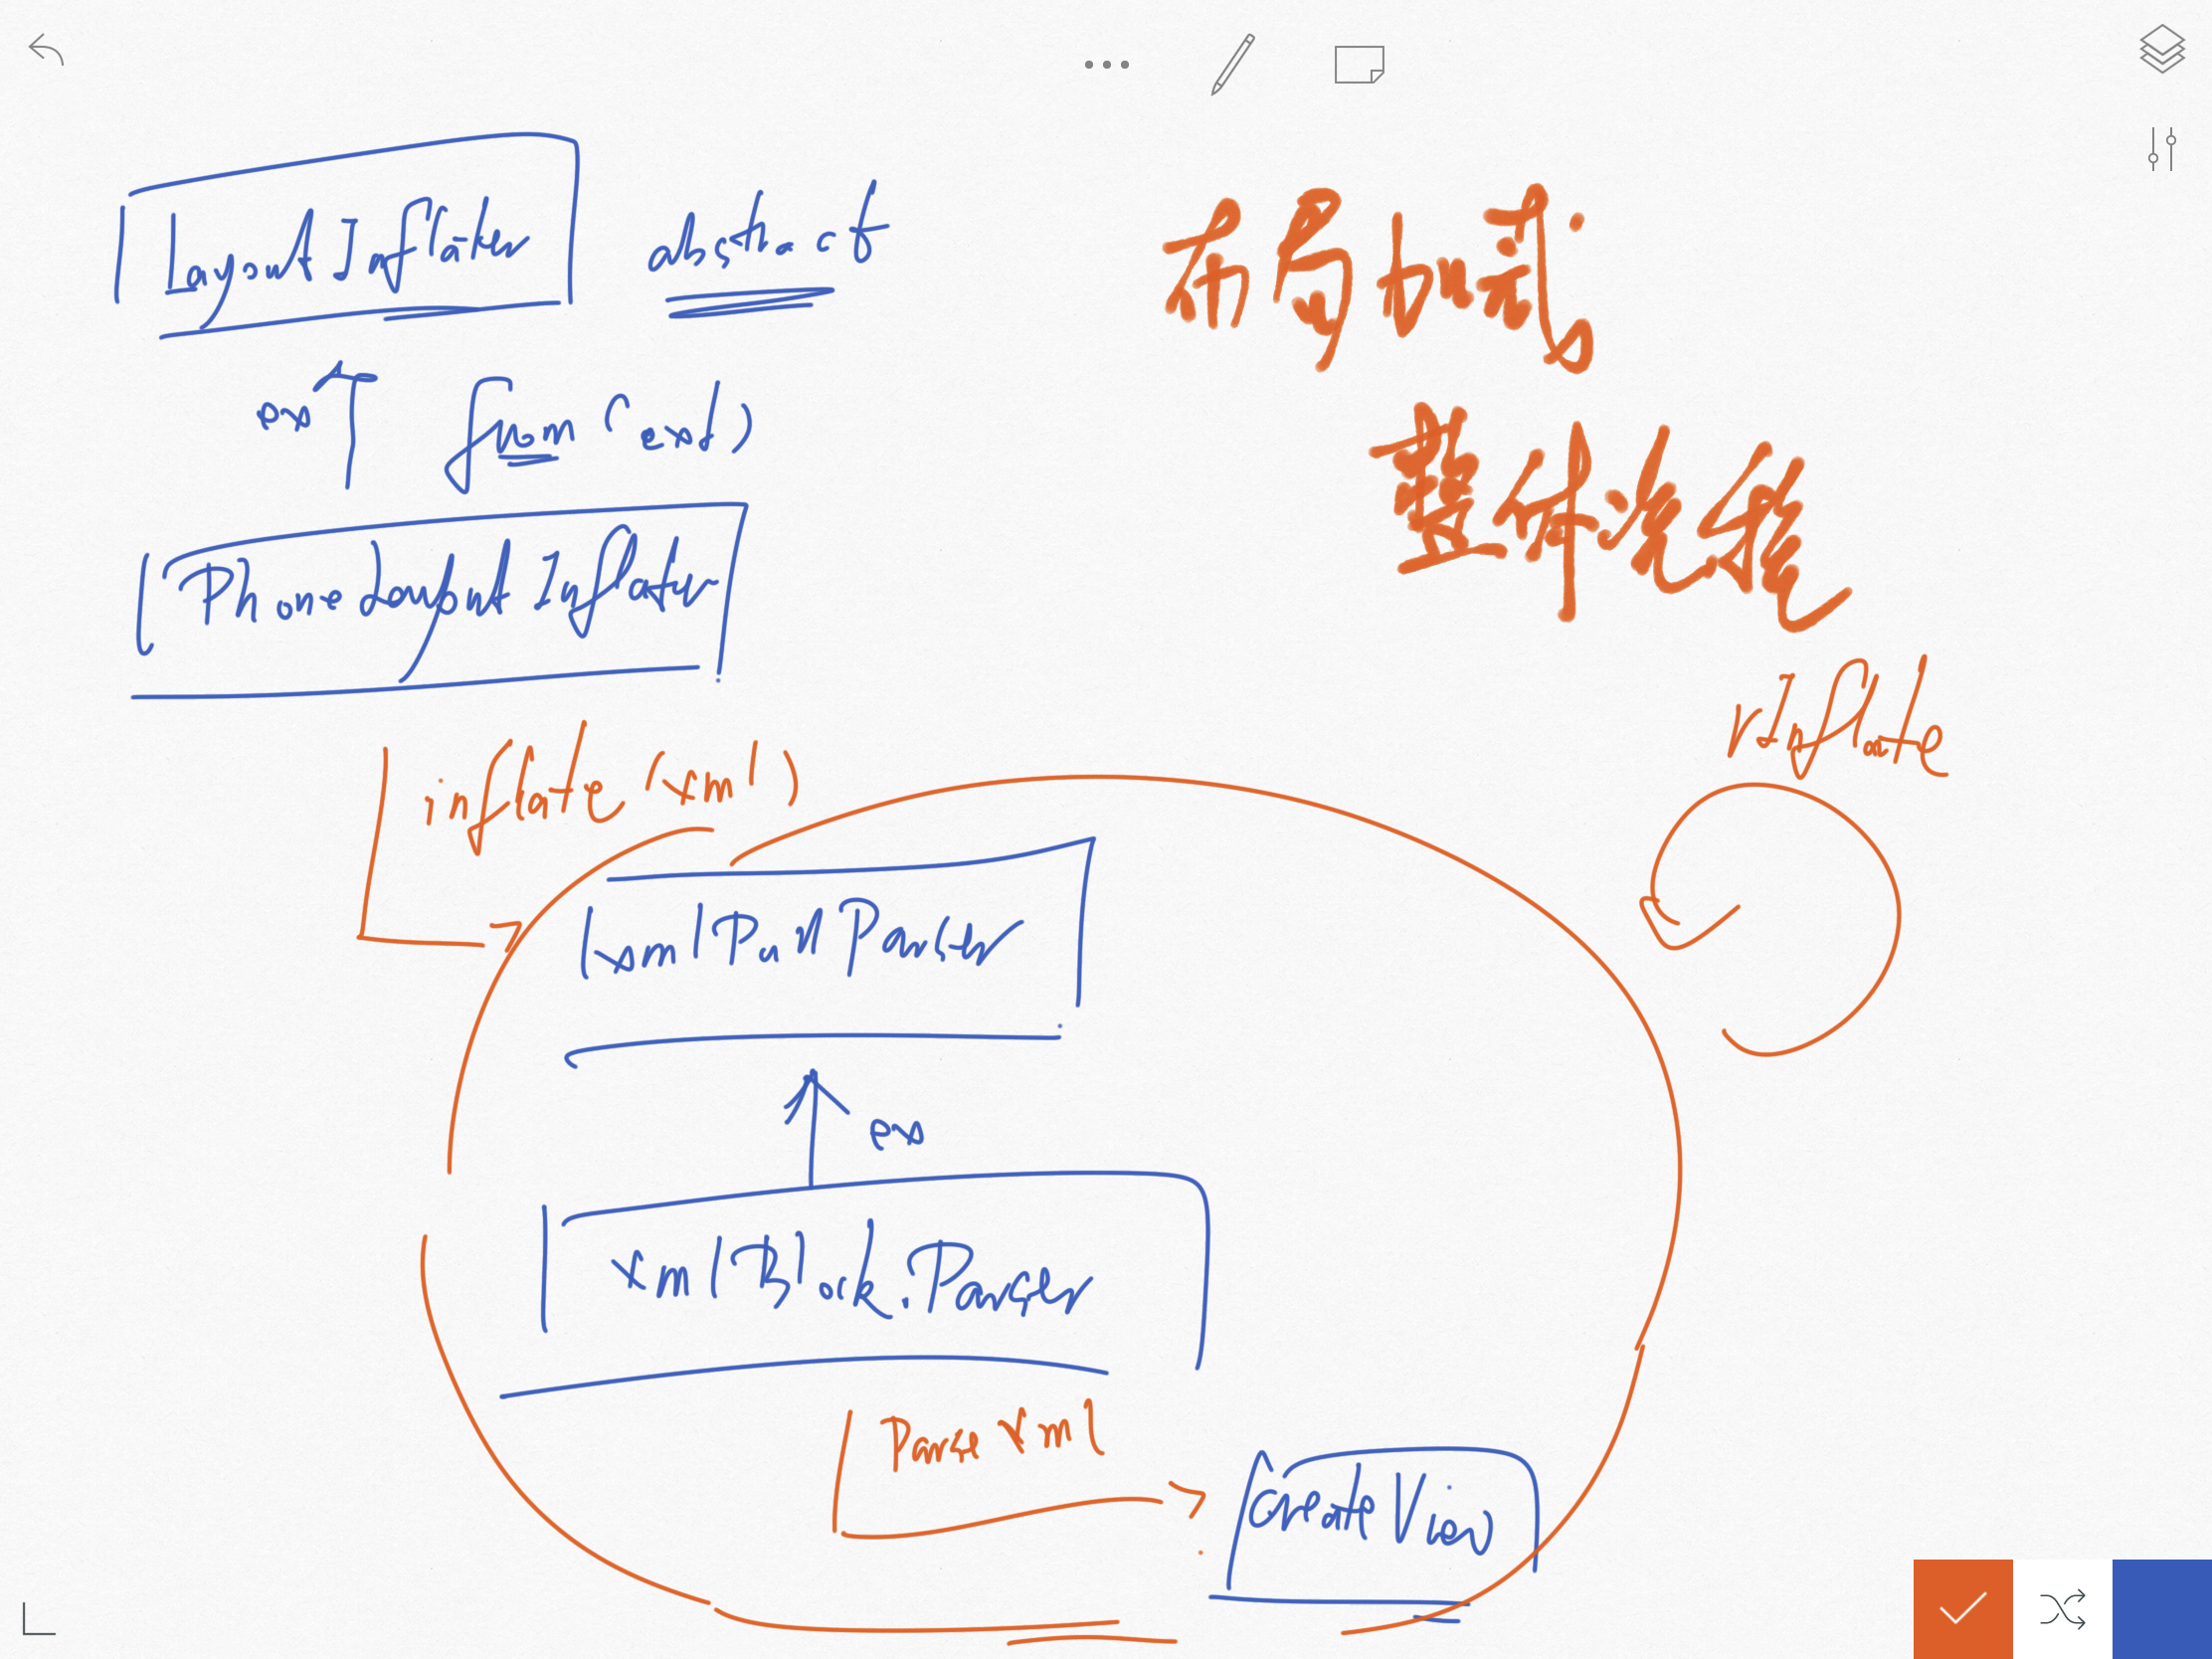 LayoutInflater abstract
布局加载
ex from(ext)
整体流程
PhoneLayoutInflater
rInflate
inflate(xml)
XmlPullParser
ex
XmlBlock.Parser
Parse xml
CreateView